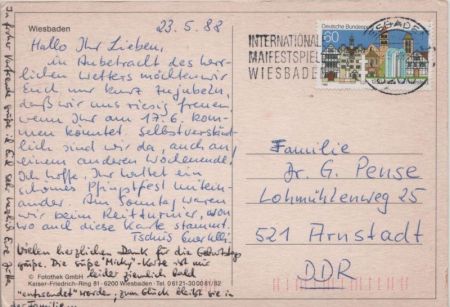 Wiesbaden
23.5.88
Hallo Ihr Lieben,
in Anbetracht des herr-
lichen Wetters möchten wir
Euch nur kurz zujubeln,
daß wir uns riesig freuen
wenn Ihr am 17.6. kom-
men könntet. Selbstverständ-
lich sind wir da, auch an
einem anderen Wochenende.
Ich hoffe, Ihr hattet ein
schönes Pfingstfest mitein-
ander. Am Sonntag waren
wir beim Reitturnier, von
wo auch diese Karte stammt.
Tschüs Euer
Vielen herzlichen Dank für die Geburtstags-
grüße. Die süße "Micky"-Karte ist mir
leider ziemlich bald
"entwendet" worden, zum Glück bleibt sie in
der Familie
In froher
grüße ich Euch sehr herzlich Eure
© Fotothek GmbH
Kaiser-Friedrich-Ring 81 · 6200 Wiesbaden · Tel. 06121-30 00 81/82
INTERNATIONALE
MAIFESTSPIELE
WIESBADEN
Deutsche Bundespost
60
Familie
Dr. G. Pense
Lohmühlenweg 25
521 Arnstadt
DDR